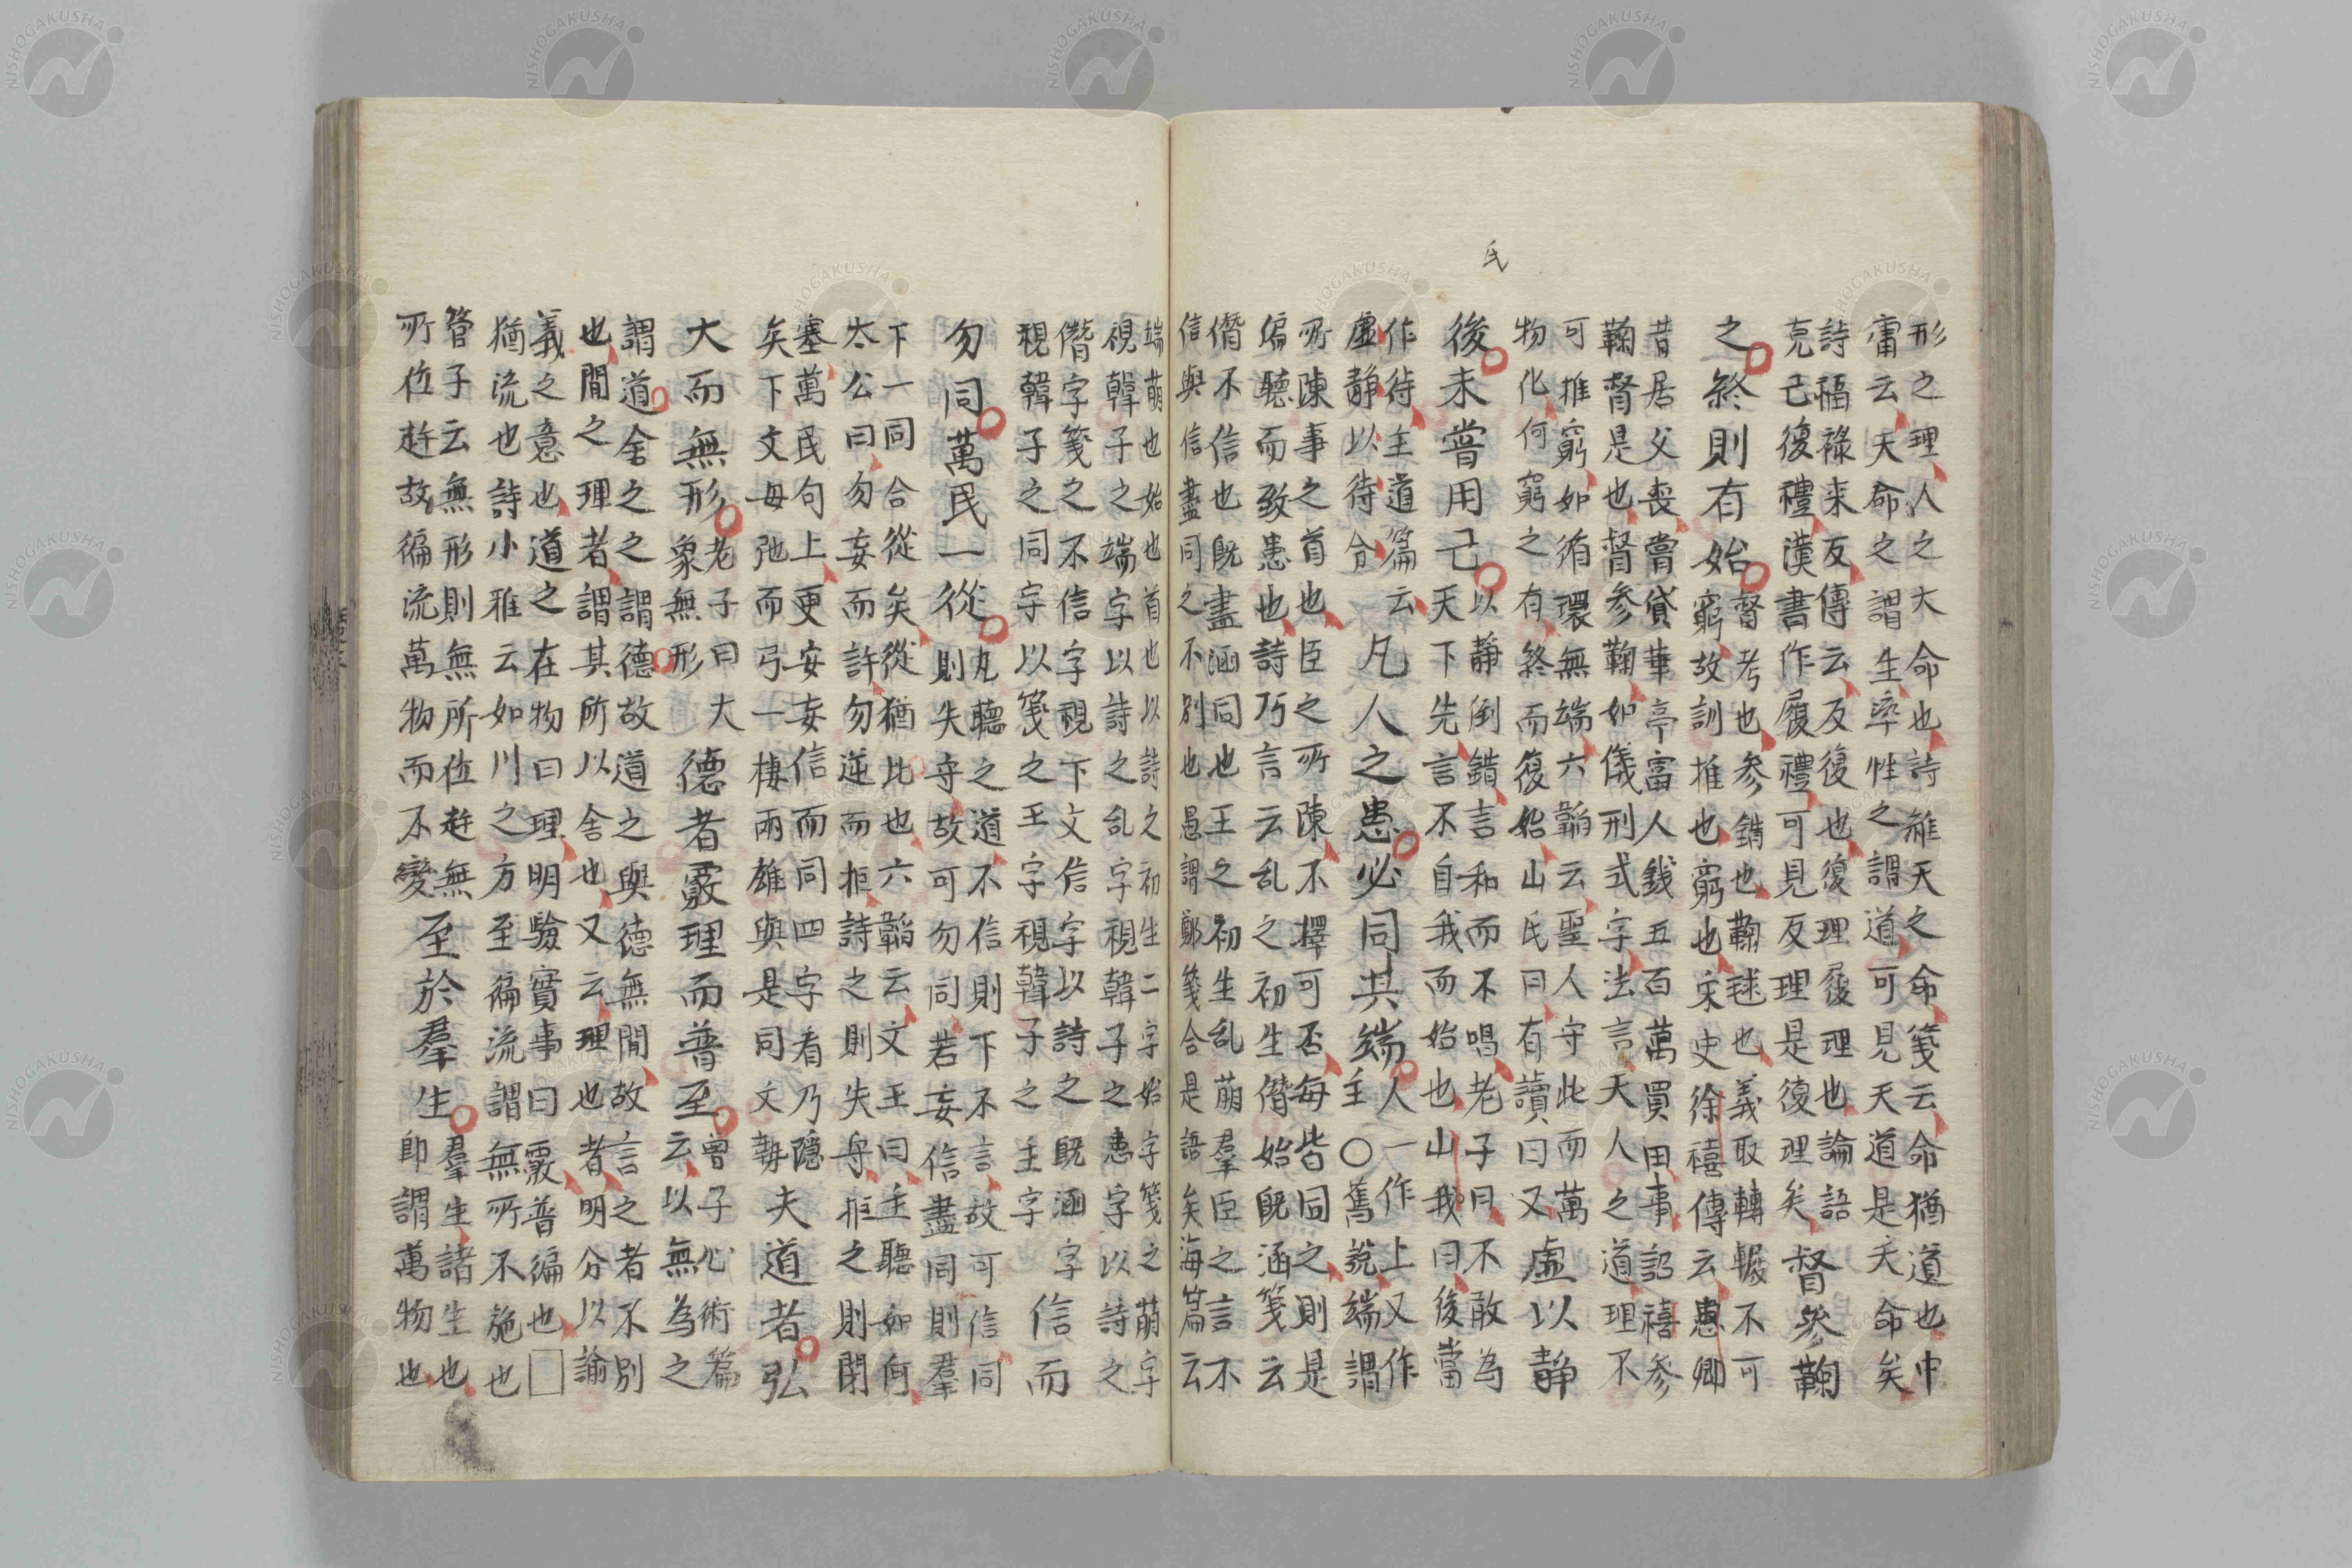 形之理人之大命也詩維天之命箋云命猶道也中
庸云天命之謂生率性之謂道可見天道是天命矣
詩福祿来反傳云反復也復理履理也論語
克己復禮漢書作履禮可見反理是復理矣督參鞠
之終則有始督考也參錯也鞠毬也義取轉輾不可
窮故訓推也窮也宋史徐禧傳云惠卿
昔居父喪嘗貸華亭富人錢五百萬買田事詔禧参
鞠督是也督参鞠如儀刑式字法言天人之道理不
可推窮如循環無端六韜云聖人守此而萬
物化何窮之有終而復始山氏曰有讀曰又虛以静
氏
後未嘗用己以静倒錯言和而不唱老子曰不敢為
天下先言不自我而始也山我曰後當
作待主道篇云
虛静以待令凡人之患必同其端人一作上又作
主〇舊說端謂
所陳事之首也臣之所陳不擇可否每皆同之則是
偏聽而致患也詩巧言云乱之初生僭始既涵箋云
僭不信也既盡涵同也王之初生乱萌羣臣之言不
信與信盡同之不別也愚謂鄭箋合是語矣海篇云
端萌也始也首也以詩之初生二字始字箋之萌字
視韓子之端字以詩之乱字視韓子之患字以詩之
僭字箋之不信字視下文信字以詩之既涵字
視韓子之同字以箋之王字視韓子之主字信而
勿同萬民一從凡聽之道不信則下不言故可信同
則失守故可勿同若妄信盡同則羣
下一同合從矣從猶比也六韜云文王曰主聽如何
太公曰勿妄而許勿逆而拒許之則失守拒之則閉
塞萬民句上更安妄信而同四字看乃隱
矣下文毋弛而弓一棲兩雄與是同文勢夫道者弘
大而無形老子曰大
象無形德者覈理而普至曾子心術篇
云以無為之
謂道舍之之謂德故道之與德無間故言之者不別
也間之理者謂其所以舍也又云理也者明分以諭
義之意也道之在物曰理明驗實事曰覈普徧也□
猶流也詩小雅云如川之方至徧流謂無所不施也
管子云無形則無所位赶無
所位赶故徧流萬物而不變至於羣生羣生諸生也
即謂萬物也